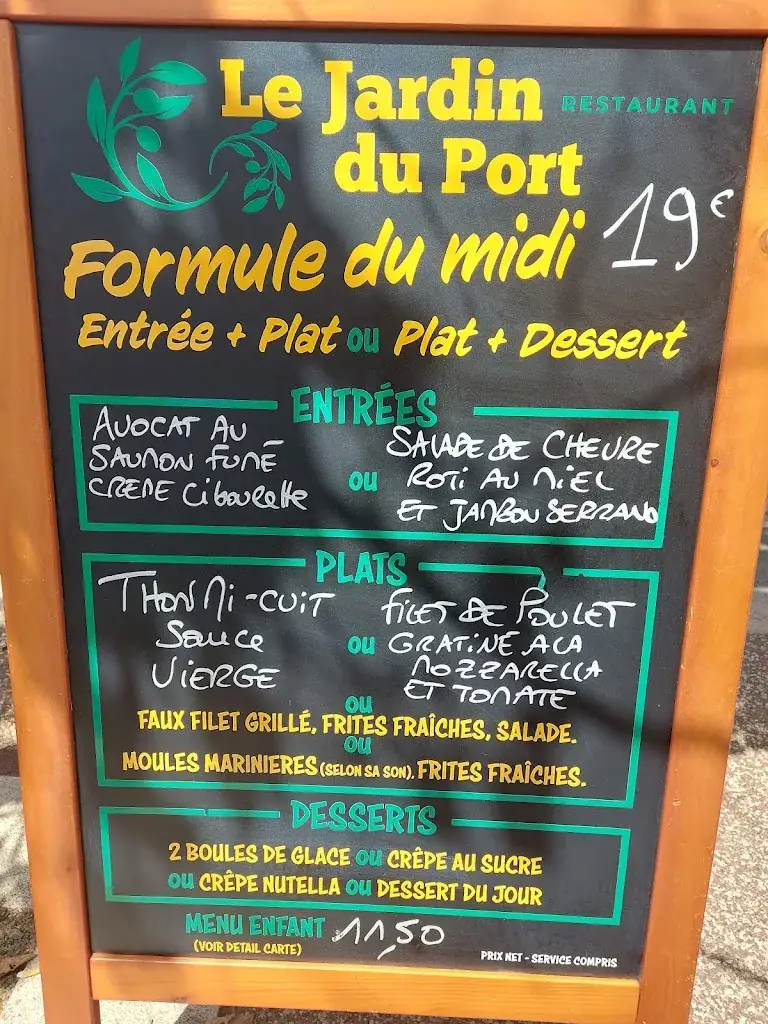 Le Jardin RESTAURANT
du Port
Formule du midi 19€
Entrée + Plat ou Plat + Dessert
ENTRÉES
AVOCAT AU
SAUMON FUMÉ
CREME CIBOULETTE
ou
SALADE DE CHEVRE
ROTI AU MIEL
ET JAMBON SERRANO
PLATS
THON MI-CUIT
SAUCE
VIERGE
ou
FILET DE POULET
GRATINE A LA
MOZZARELLA
ET TOMATE
ou
FAUX FILET GRILLÉ, FRITES FRAÎCHES, SALADE.
ou
MOULES MARINIERES (SELON SA SON). FRITES FRAÎCHES.
DESSERTS
2 BOULES DE GLACE ou CRÊPE AU SUCRE
ou CRÊPE NUTELLA ou DESSERT DU JOUR
MENU ENFANT 11,50
(VOIR DETAIL CARTE)
PRIX NET - SERVICE COMPRIS